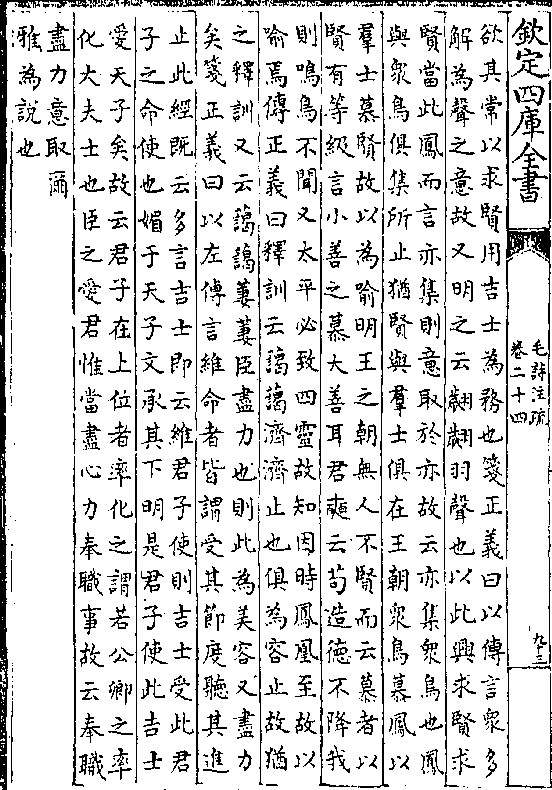 欽定四庫全書
毛詩注疏
卷二十四
九十三
欲其常以求賢用吉士為務也箋正義曰以傳言衆多
解為聲之意故又明之云翽翽羽聲也以此興求賢求
賢當此鳳而言亦集則意取於亦故云亦集衆鳥也鳳
與衆鳥俱集所止猶賢與羣士俱在王朝衆鳥慕鳳以
羣士慕賢故以為喻明王之朝無人不賢而云慕者以
賢有等級言小善之慕大善耳君奭云茍造德不降我
則鳴鳥不聞又太平必致四靈故知因時鳳凰至故以
喻焉傳正義曰釋訓云藹藹濟濟止也俱為容止故猶
之釋訓又云藹藹萋萋臣盡力也則此為美容又盡力
矣箋正義曰以左傳言維命者皆謂受其節度聽其進
止此經既云多言吉士即云維君子使則吉士受此君
子之命使也媚于天子文承其下明是君子使此吉士
愛天子矣故云君子在上位者率化之謂若公卿之率
化大夫士也臣之愛君惟當盡心力奉職事故云奉職
盡力意取爾
雅為說也